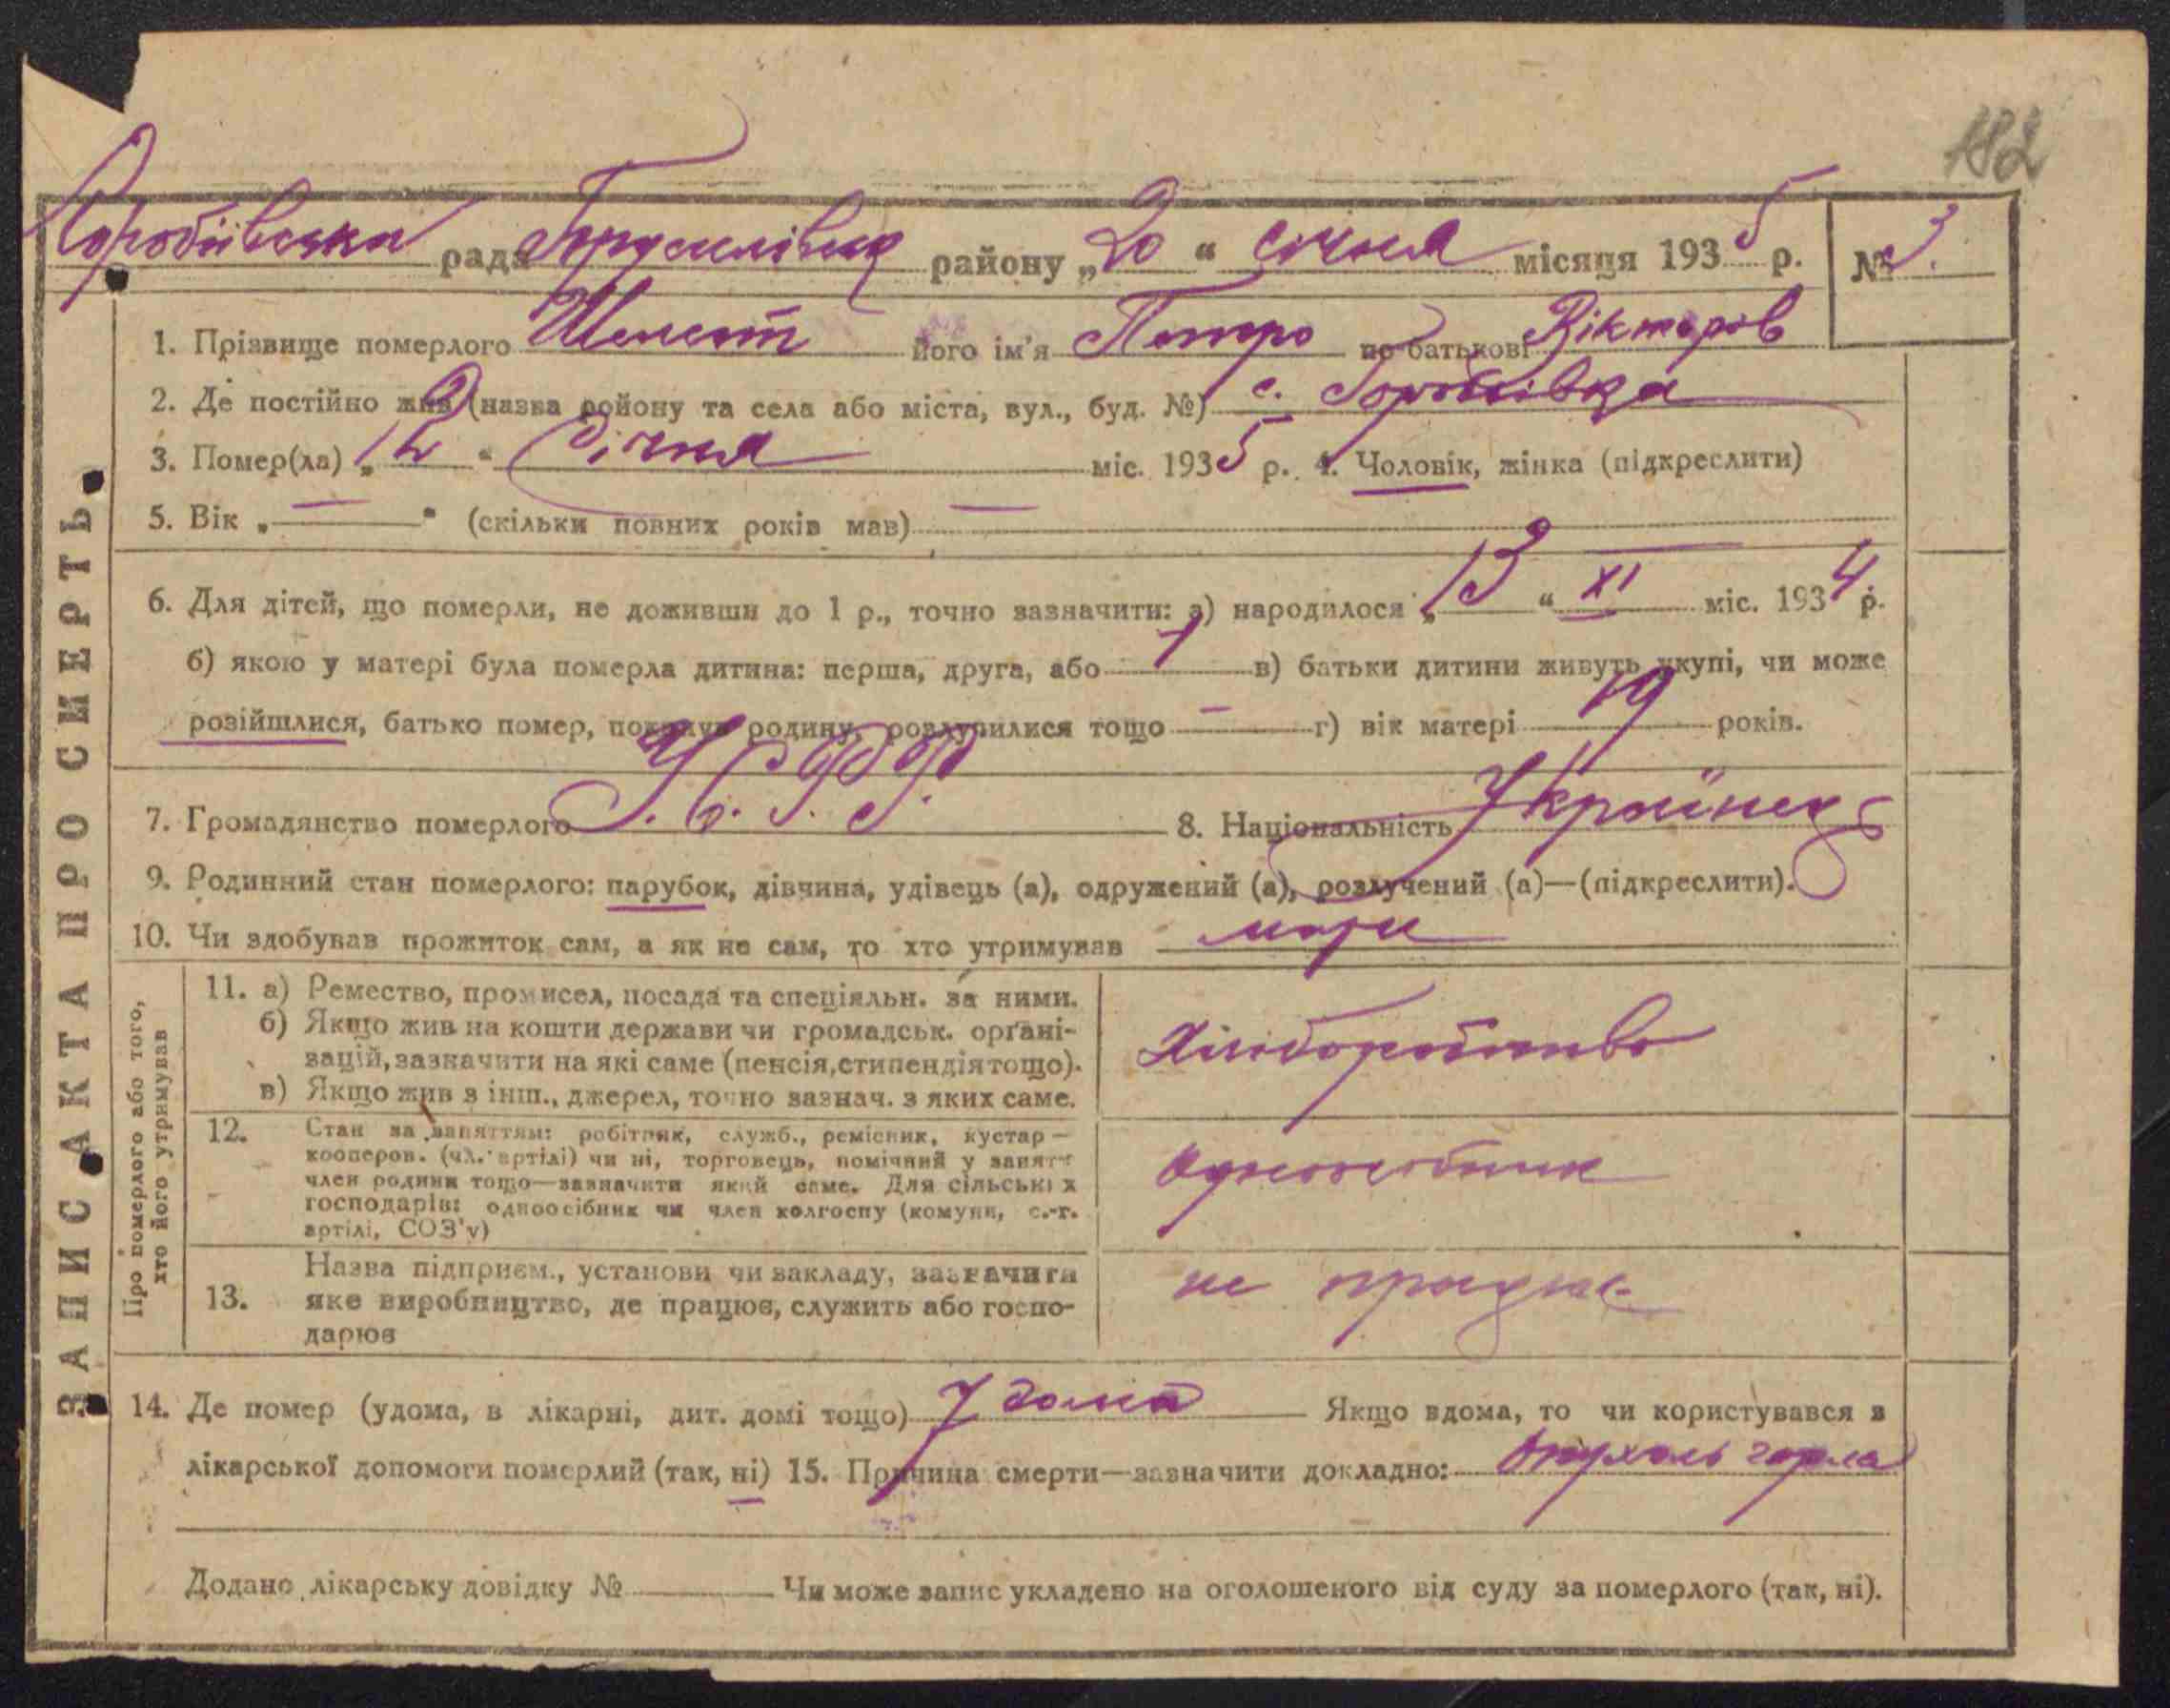 182
рада району „20“ січня місяця 1935 р. № 3.
1. Прізвище померлого Шелест його ім'я Петро по батькові Вікторов
2. Де постійно жив (назва району та села або міста, вул., буд. №) с.
3. Помер(ла) „12“ Січня міс. 1935 р. 4. Чоловік, жінка (підкреслити)
5. Вік „—“ (скільки повних років мав) —
6. Для дітей, що померли, не доживши до 1 р., точно зазначити: а) народилося „13“ XI міс. 1934 р.
б) якою у матері була померла дитина: перша, друга, або 1 в) батьки дитини живуть укупі, чи може
розійшлися, батько помер, покинув родину, розлучилися тощо — г) вік матері 19 років.
7. Громадянство померлого У.С.Р.Р. 8. Національність Українец
9. Родинний стан померлого: парубок, дівчина, удівець (а), одружений (а), розлучений (а)—(підкреслити).
10. Чи здобував прожиток сам, а як не сам, то хто утримував мати
ЗАПИС АКТА ПРО СМЕРТЬ
Про померлого або того,
хто його утримував
11. а) Ремество, промисел, посада та спеціяльн. за ними.
б) Якщо жив на кошти держави чи громадськ. орґані-
зацій, зазначити на які саме (пенсія, стипендія тощо).
в) Якщо жив з інш., джерел, точно зазнач. з яких саме.
Хліборобство
12. Стан за заняттям: робітник, служб., ремісник, кустар—
кооперов. (чл. артілі) чи ні, торговець, помічний у занятт
член родини тощо—зазначити який саме. Для сільських
господарів: одноосібник чи член колгоспу (комуни, с.-г.
артілі, СОЗ'у)
одноосібник
13. Назва підприєм., установи чи закладу, зазначити
яке виробництво, де працює, служить або госпо-
дарює
не працює
14. Де помер (удома, в лікарні, дит. домі тощо) У дома Якщо вдома, то чи користувався з
лікарської допомоги померлий (так, ні) 15. Причина смерти—зазначити докладно: опухоль горла
Додано лікарську довідку № Чи може запис укладено на оголошеного від суду за померлого (так, ні).